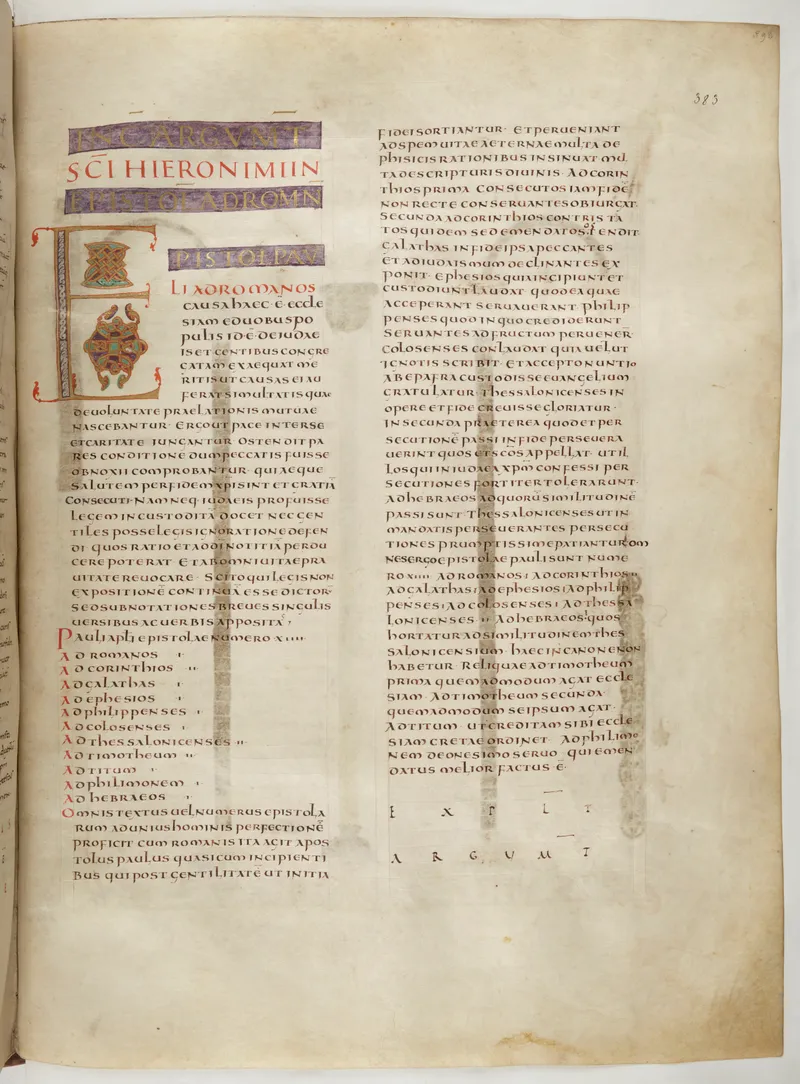 383
INC ARGUMT
SCI HIERONIMI IN
EPISTOLA AD ROMN
EPISTOL PAU
LI AD ROMANOS
CAUSA HAEC · E · ECCLE
SIAM E DUOBUS PO
PULIS IDE · DE IUDAE
IS ET GENTIBUS CONGRE
GATAM EXAEQUAT ME
RITIS UT CAUSAS EI AU
FERAT SIMULTATIS QUAE
DE UOLUNTATE PRAELATIONIS MUTUAE
NASCEBANTUR · ERGO UT PACE INTER SE
ET CARITATE IUNGANTUR OSTENDIT PA
RES CONDITIONE DUM PECCATIS FUISSE
OBNOXII COMPROBANTUR · QUI AEQUE
SALUTEM PER FIDEM XPI SINT ET GRATIA
CONSECUTI · NAM NEQ · IUDAEIS PROFUISSE
LEGEM INCUSTODITA DOCET NEC GEN
TILES POSSE LEGIS IGNORATIONE DEFEN
DI QUOS RATIO ET AD DI NOTITIA PERDU
CERE POTERAT ET AB OMNI UITAE PRA
UITATE REUOCARE · SCITO QUI LEGIS NON
EXPOSITIONE CONTINUA ESSE DICTOR
SED SUBNOTATIONES BREUES SINGULIS
UERSIBUS AC UERBIS APPOSITA
PAULI APLI EPISTOLAE NUMERO XIIII
AD ROMANOS I
AD CORINTHIOS II
AD GALATHAS I
AD EPHESIOS I
AD PHILIPPENSES I
AD COLOSENSES I
AD THESSALONICENSES II
AD TIMOTHEUM II
AD TITUM I
AD PHILIMONEM I
AD HEBRAEOS I
OMNIS TEXTUS UEL NUMERUS EPISTOLA
RUM AD UNIUS HOMINIS PERFECTIONE
PROFICIT CUM ROMANIS ITA AGIT APOS
TOLUS PAULUS QUASI CUM INCIPIENTI
BUS QUI POST GENTILITATE UT INITIA
FIDEI SORTIANTUR · ET PERUENIANT
AD SPEM UITAE AETERNAE MULTA DE
PHISICIS RATIONIBUS INSINUAT MUL
TA DE SCRIPTURIS DIUINIS · AD CORIN
THIOS PRIMA CONSECUTOS IAM FIDE
NON RECTE CONSERUANTES OBIURGAT
SECUNDA AD CORINTHIOS CONTRISTA
TOS QUIDEM SED EMENDATOS OSTENDIT
GALATHAS IN FIDE IPSA PECCANTES
ET AD IUDAISMUM DECLINANTES EX
PONIT · EPHESIOS QUIA INCIPIUNT ET
CUSTODIUNT LAUDAT QUOD EA QUAE
ACCEPERANT SERUAUERANT · PHILIP
PENSES QUOD IN QUO CREDIDERUNT
SERUANTES AD FRUCTUM PERUENER
COLOSENSES CONLAUDAT QUIA UELUT
IGNOTIS SCRIBIT · ET ACCEPTO NUNTIO
AB EPAFRA CUSTODISSE EUANGELIUM
GRATULATUR · THESSALONICENSES IN
OPERE ET FIDE CREUISSE GLORIATUR ·
IN SECUNDA PRAETEREA QUOD ET PER
SECUTIONE PASSI IN FIDE PERSEUERA
UERINT QUOS ET SCOS APPELLAT · UT IL
LOS QUI IN IUDAEA XPM CONFESSI PER
SECUTIONES FORTITER TOLERARUNT ·
AD HEBRAEOS AD QUORUM SIMILITUDINE
PASSI SUNT · THESSALONICENSES UT IN
MANDATIS PERSEUERANTES PERSECU
TIONES PRUMPTISSIME PATIANTUR OM
NES ERGO EPISTOLAE PAULI SUNT NUME
RO XIIII AD ROMANOS I AD CORINTHIOS II
AD GALATHAS I AD EPHESIOS I AD PHILIP
PENSES I AD COLOSENSES I AD THESSA
LONICENSES II AD HEBRAEOS QUOS
HORTATUR AD SIMILITUDINEM THES
SALONICENSIUM · HAEC IN CANONE NON
HABETUR · RELIQUAE AD TIMOTHEUM
PRIMA QUEMADMODUM AGAT ECCLE
SIAM · AD TIMOTHEUM SECUNDA
QUEMADMODUM SE IPSUM AGAT ·
AD TITUM · UT CREDITAM SIBI ECCLE
SIAM CRETAE ORDINET · AD PHILIMO
NEM DE ONESIMO SERUO · QUI EMEN
DATUS MELIOR FACTUS E ·
EXPLT
ARGUMT